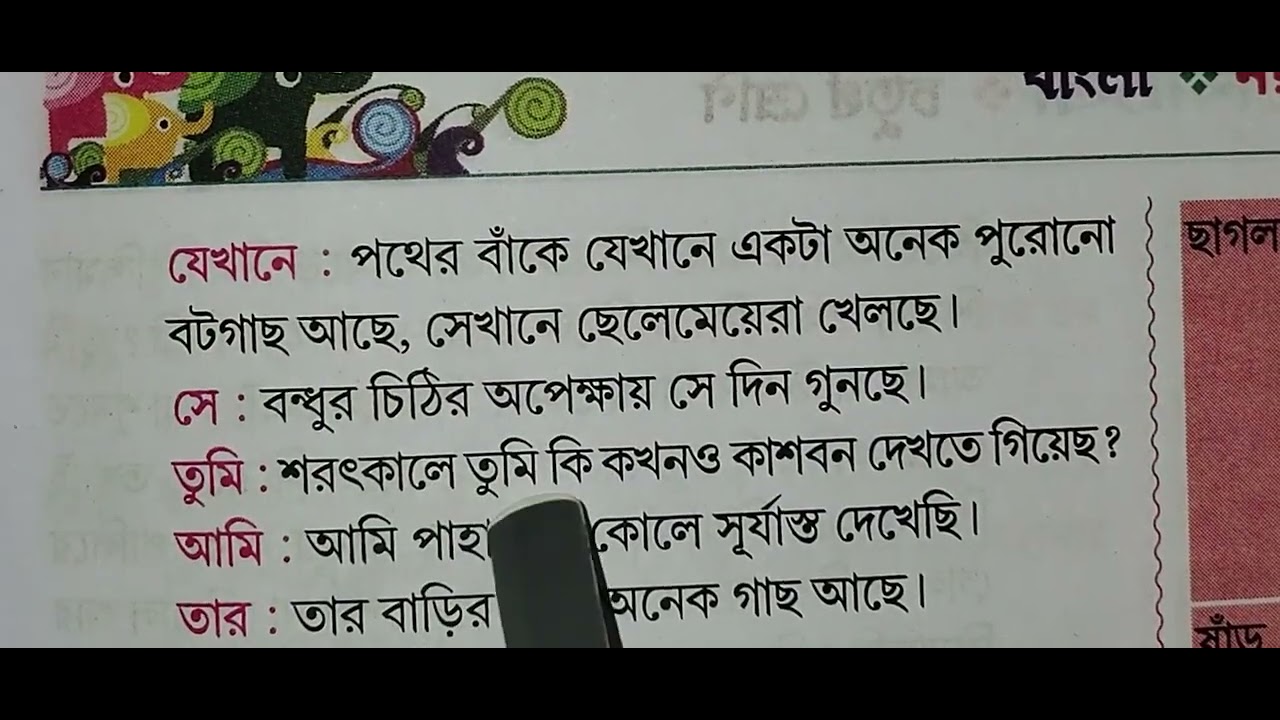 বাংলা
যেখানে : পথের বাঁকে যেখানে একটা অনেক পুরোনো
বটগাছ আছে, সেখানে ছেলেমেয়েরা খেলছে।
সে : বন্ধুর চিঠির অপেক্ষায় সে দিন গুনছে।
তুমি : শরৎকালে তুমি কি কখনও কাশবন দেখতে গিয়েছ?
আমি : আমি কোলে সূর্যাস্ত দেখেছি।
তার : তার বাড়ির অনেক গাছ আছে।
ছাগল
ষাঁড়